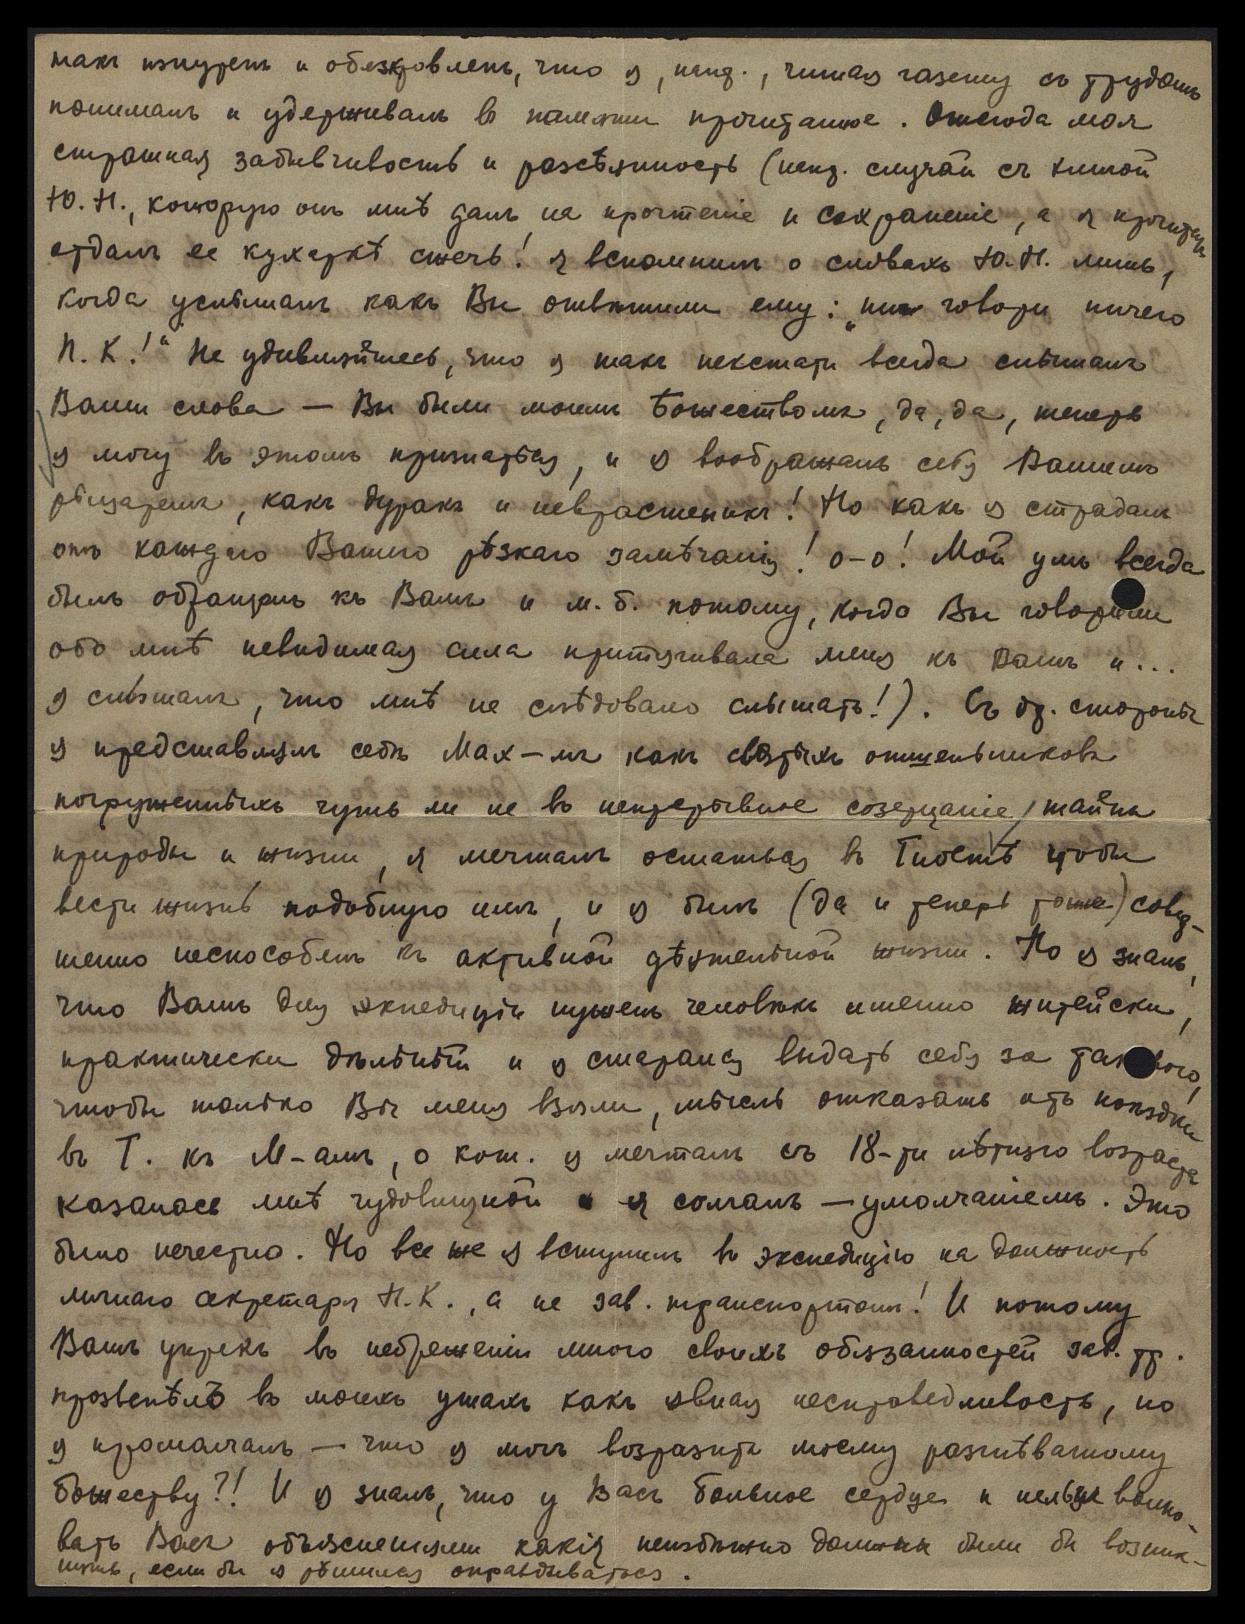 такъ изнуренъ и обезкровленъ, что я, напр., читая газету съ трудомъ
понималъ и удерживалъ въ памяти прочитанное. Отсюда моя
страшная забывчивость и разсѣянность (напр. случай съ книгой
Ю.Н., которую онъ мнѣ далъ на прочтеніе и сохраненіе, а я прочитавъ
отдалъ ее кухаркѣ сжечь! Я вспомнилъ о словахъ Ю.Н. лишь,
когда услышалъ какъ Вы отвѣтили ему: „не говори ничего
П.К.!" Не удивляйтесь, что я такъ некстати всегда слышалъ
Ваши слова — Вы были моимъ Божествомъ, да, да, теперь
я могу въ этомъ признаться, и я воображалъ себя Вашимъ
рыцаремъ, какъ дуракъ и неврастеникъ! Но какъ я страдалъ
отъ каждаго Вашего рѣзкаго замѣчанія! о-о! Мой умъ всегда
былъ обращенъ къ Вамъ и м.б. потому, когда Вы говорили
обо мнѣ невидимая сила притягивала меня къ Вамъ и...
я слышалъ, что мнѣ не слѣдовало слышать!). Съ др. стороны
я представлялъ себѣ Мах-мъ какъ святыхъ отшельниковъ
погруженныхъ чуть ли не въ непрерывное созерцаніе тайнъ
природы и жизни, я мечталъ остаться въ Тибетѣ чтобы
вести жизнь подобную имъ, и я былъ (да и теперь тоже) совер-
шенно неспособенъ къ активной дѣятельной жизни. Но я зналъ,
что Вамъ для экпедиціи нуженъ человѣкъ именно житейски,
практически дѣльный и я старался выдать себя за таковаго,
чтобы только Вы меня взяли, мысль отказать отъ поѣздки
въ Т. къ М-амъ, о кот. я мечталъ съ 18-ти лѣтняго возраста
казалась мнѣ чудовищной и я солгалъ — умолчаніемъ. Это
было нечестно. Но все же я вступилъ въ экспедицію на должность
личнаго секретаря Н.К., а не зав. транспортомъ! И потому
Вашъ упрекъ въ небреженіи много своихъ обязанностей зав. тр.
прозвенѣлъ въ моихъ ушахъ какъ явная несправедливость, но
я промолчалъ — что я могъ возразить моему разгнѣванному
божеству?! И я зналъ, что у Васъ больное сердце и нельзя волно-
вать Васъ объясненіями какія неизбѣжно должны были бы возник-
нуть, если бы я рѣшился оправдываться.